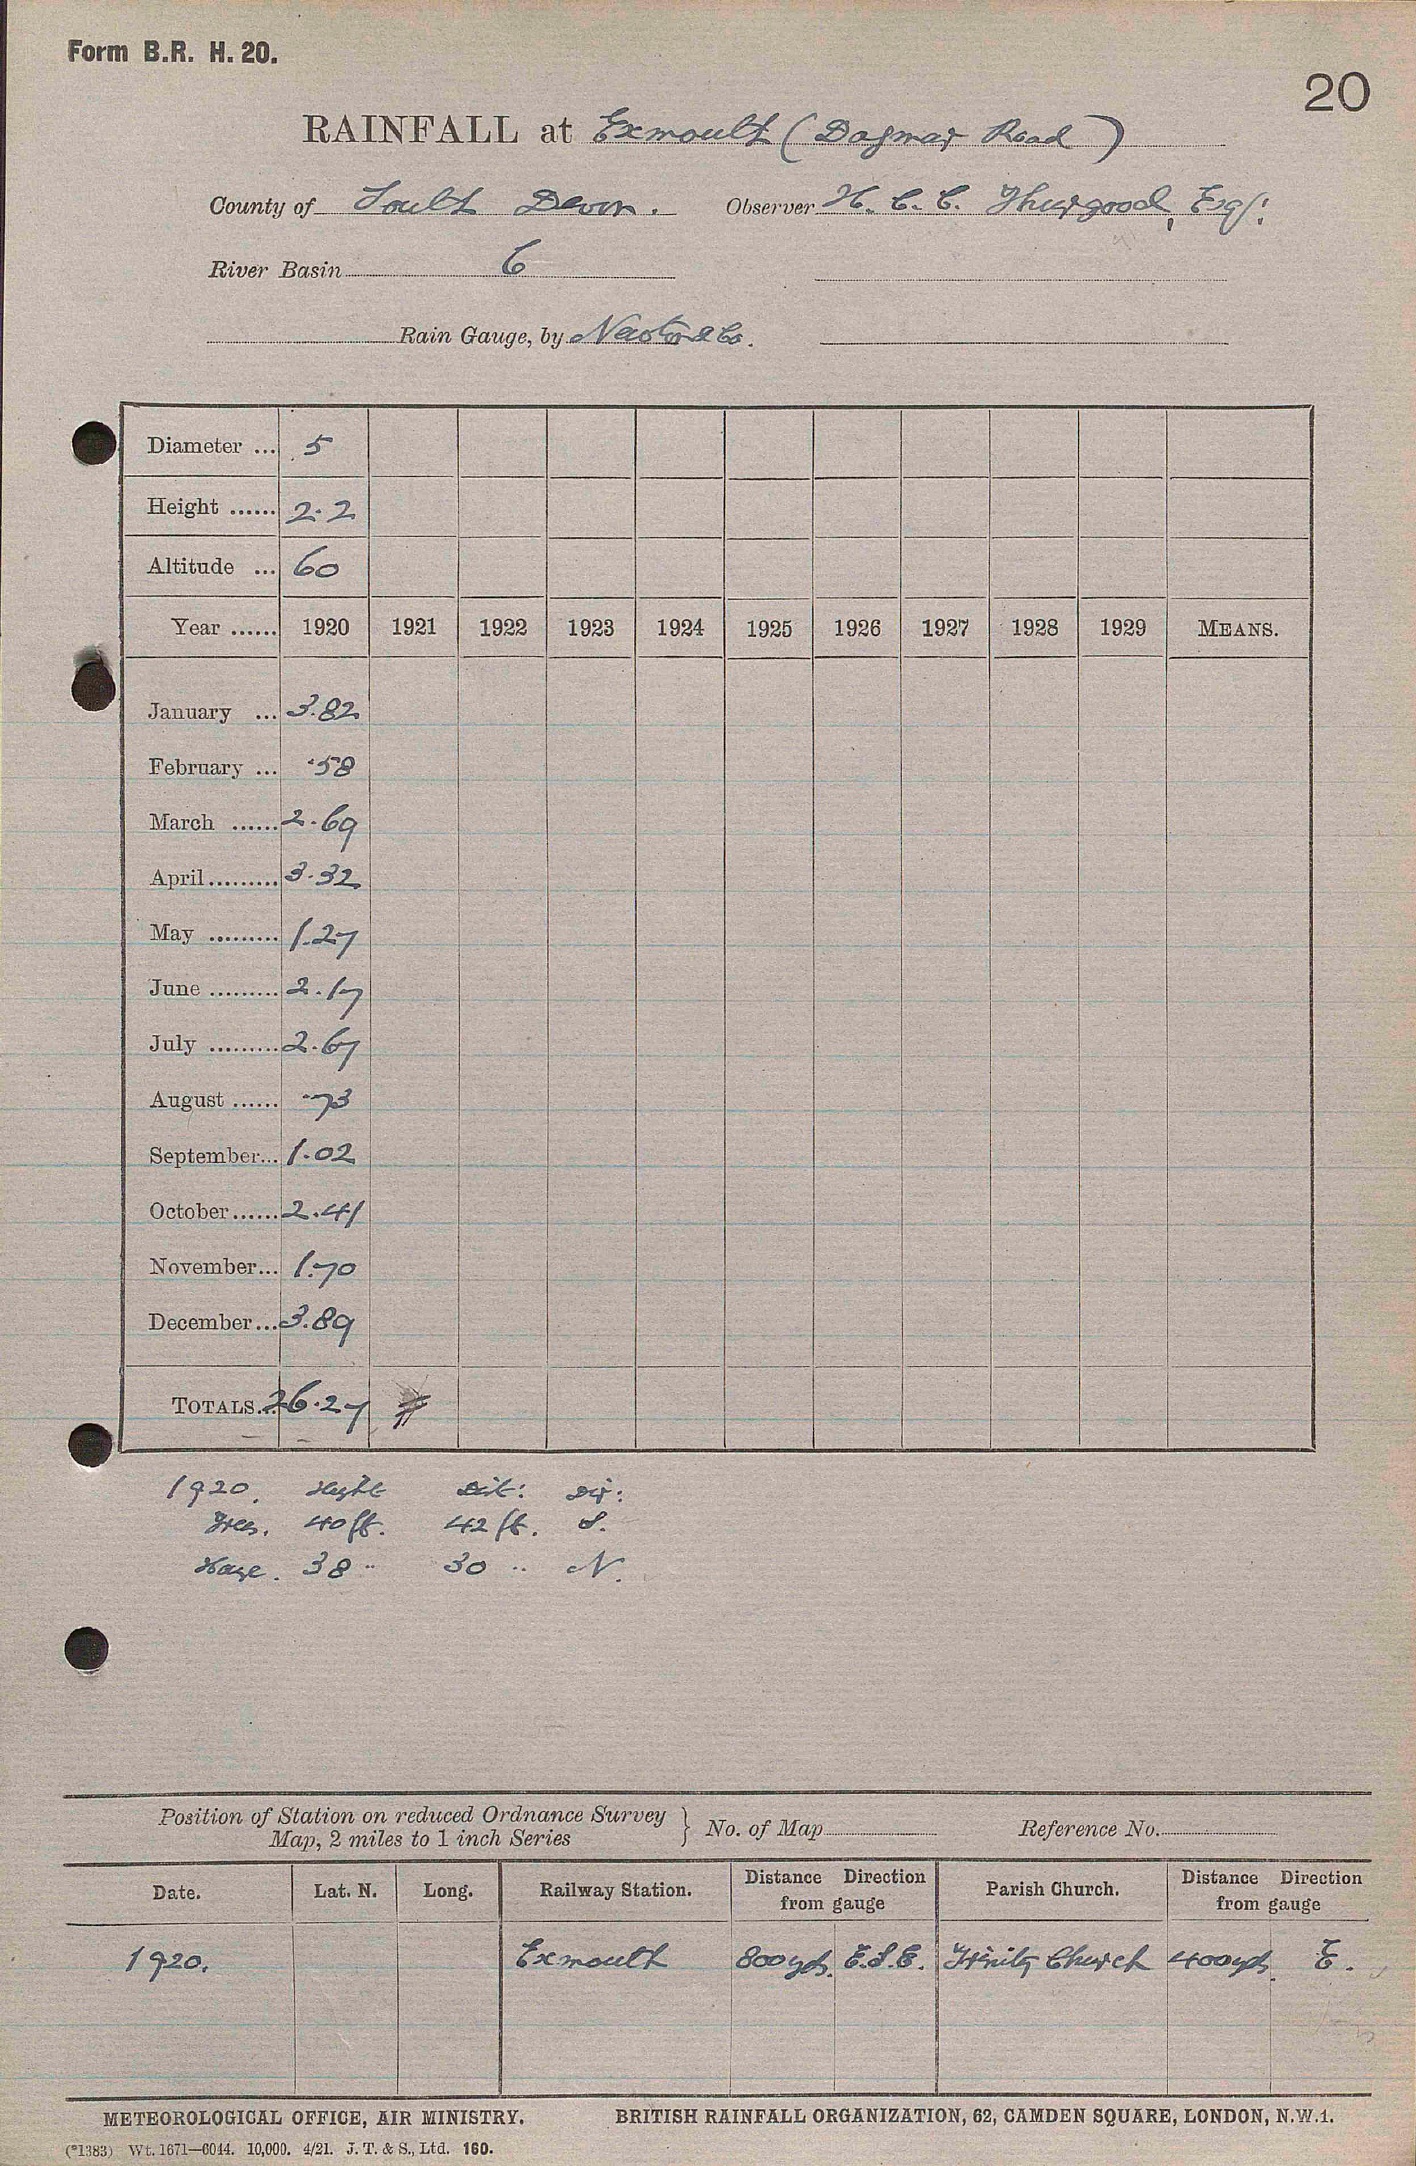 Form B.R. H. 20.
20
RAINFALL at Exmouth (Dagmar Road)
County of South Devon. Observer H. C. C. Thurgood, Esq:
River Basin 6
Rain Gauge, by Newton & Co.
Diameter ... 5
Height ...... 2.2
Altitude ... 60
Year ...... 1920 1921 1922 1923 1924 1925 1926 1927 1928 1929 MEANS.
January ... 3.82
February ... .58
March ...... 2.69
April ......... 3.32
May ......... 1.27
June ......... 2.17
July ......... 2.67
August ...... .73
September... 1.02
October...... 2.41
November... 1.70
December... 3.89
TOTALS... 26.27
1920. Height Dist: Dir:
Trees. 40 ft. 42 ft. S.
House. 38 " 30 " N.
Position of Station on reduced Ordnance Survey
Map, 2 miles to 1 inch Series } No. of Map Reference No.
Date. Lat. N. Long. Railway Station. Distance Direction from gauge Parish Church. Distance Direction from gauge
1920. Exmouth 800 yds. E.S.E. Trinity Church 400 yds. E.
METEOROLOGICAL OFFICE, AIR MINISTRY. BRITISH RAINFALL ORGANIZATION, 62, CAMDEN SQUARE, LONDON, N.W.1.
(*1383) Wt. 1671—6044. 10,000. 4/21. J. T. & S., Ltd. 160.